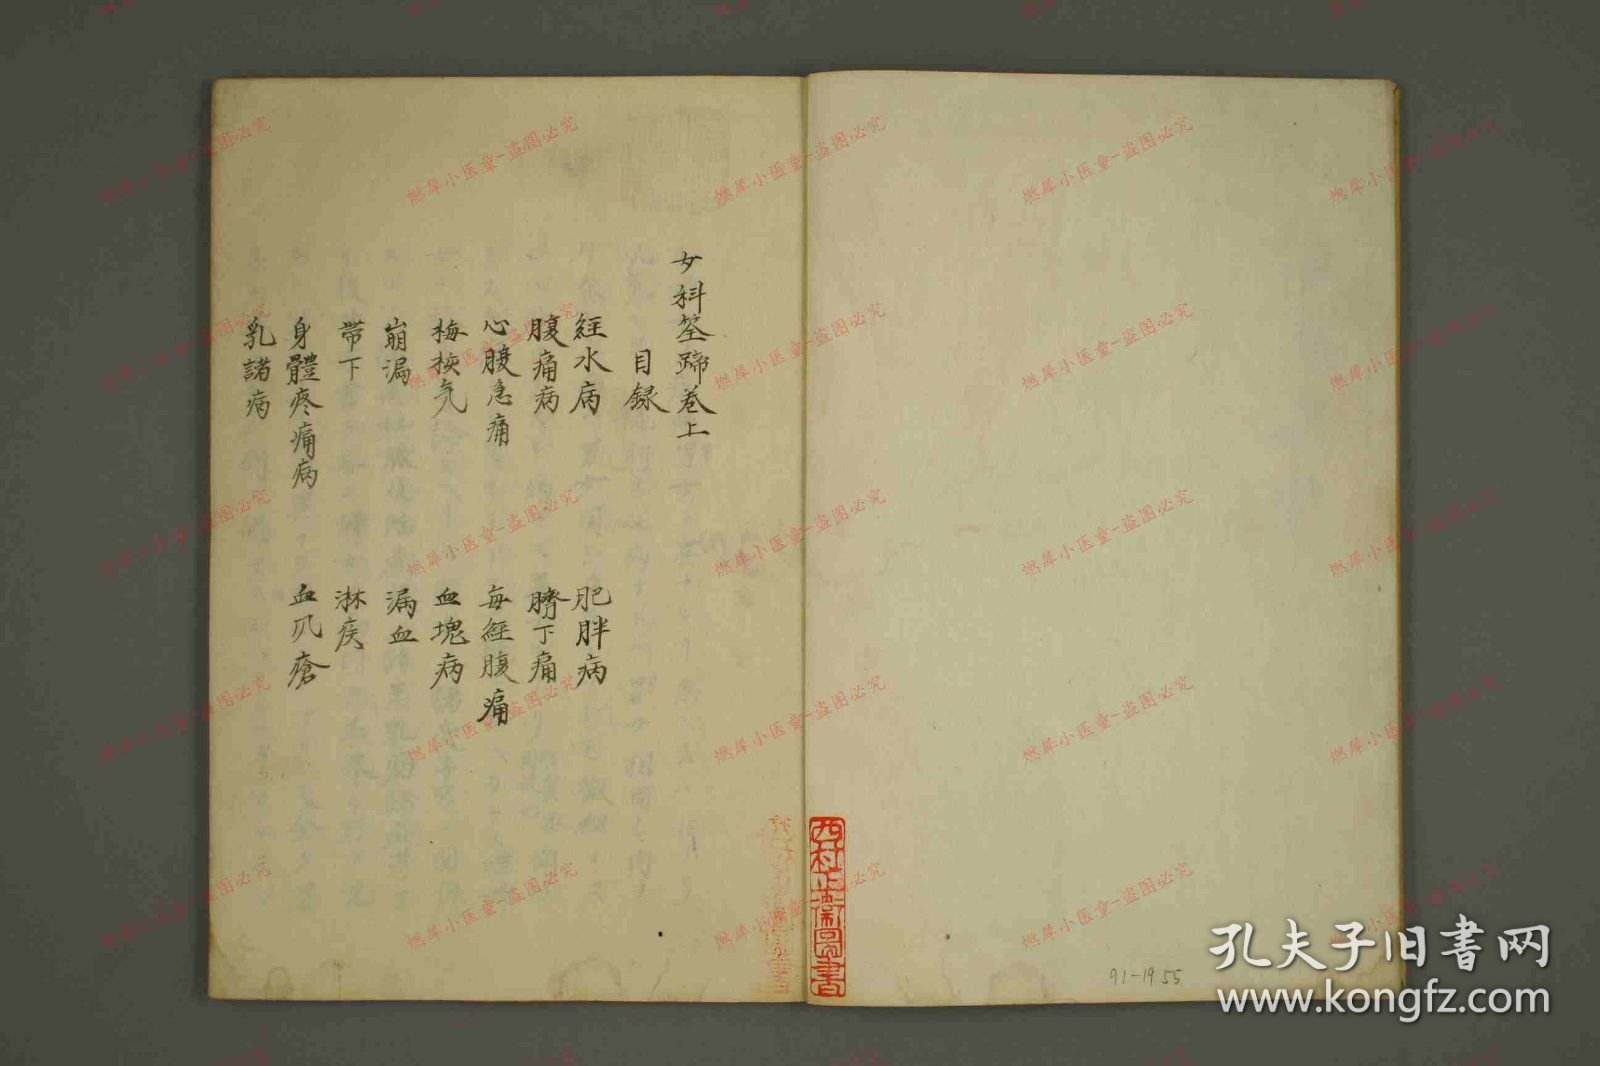 女科筌蹄巻上
目録
経水病
肥胖病
腹痛病
臍下痛
心腹急痛
毎經腹痛
梅核気
血塊病
崩漏
漏血
帯下
淋疾
身體疼痛病
血爪瘡
乳諸病
西村
圖書
91-1955
燃犀小医童-盗图必究
孔夫子旧书网
www.kongfz.com